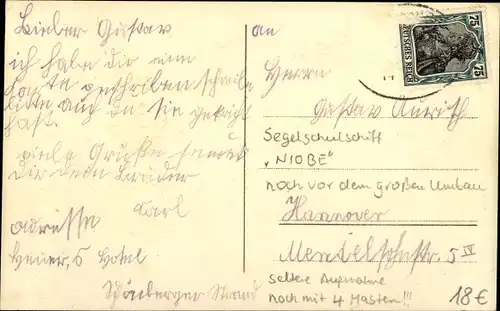 Lieber Gustav
ich habe dir eine
Karte geschriben schreibe
bitte auf du sie gekrigt
hast.
viele Grüße sendet
dir dein Bruder
Carl
Adresse
Heuer, 6 Hotel
Schönberger Strand
An
Herrn
Gustav
Segelschulschiff
„NIOBE"
noch vor dem großen Umbau
Hannover
Mendelssohnstr. 5 IV
seltene Aufnahme
noch mit 4 Masten!!!
18€
75
75
DEUTSCHES REICH